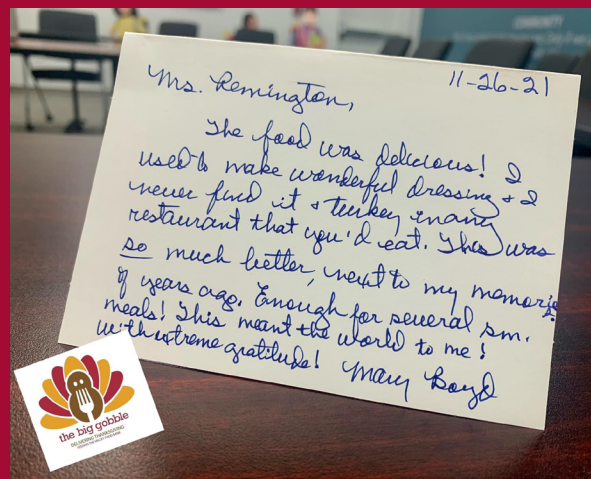 COMMUNITY
11-26-21
Mrs. Remington,
The food was delicious! I
used to make wonderful dressing & I
never find it & turkey in any
restaurant that you'd eat. This was
so much better, next to my memories
of years ago. Enough for several sm.
meals! This meant the world to me!
With extreme gratitude! Mary Boyd
the big gobble
DELIVERING THANKSGIVING